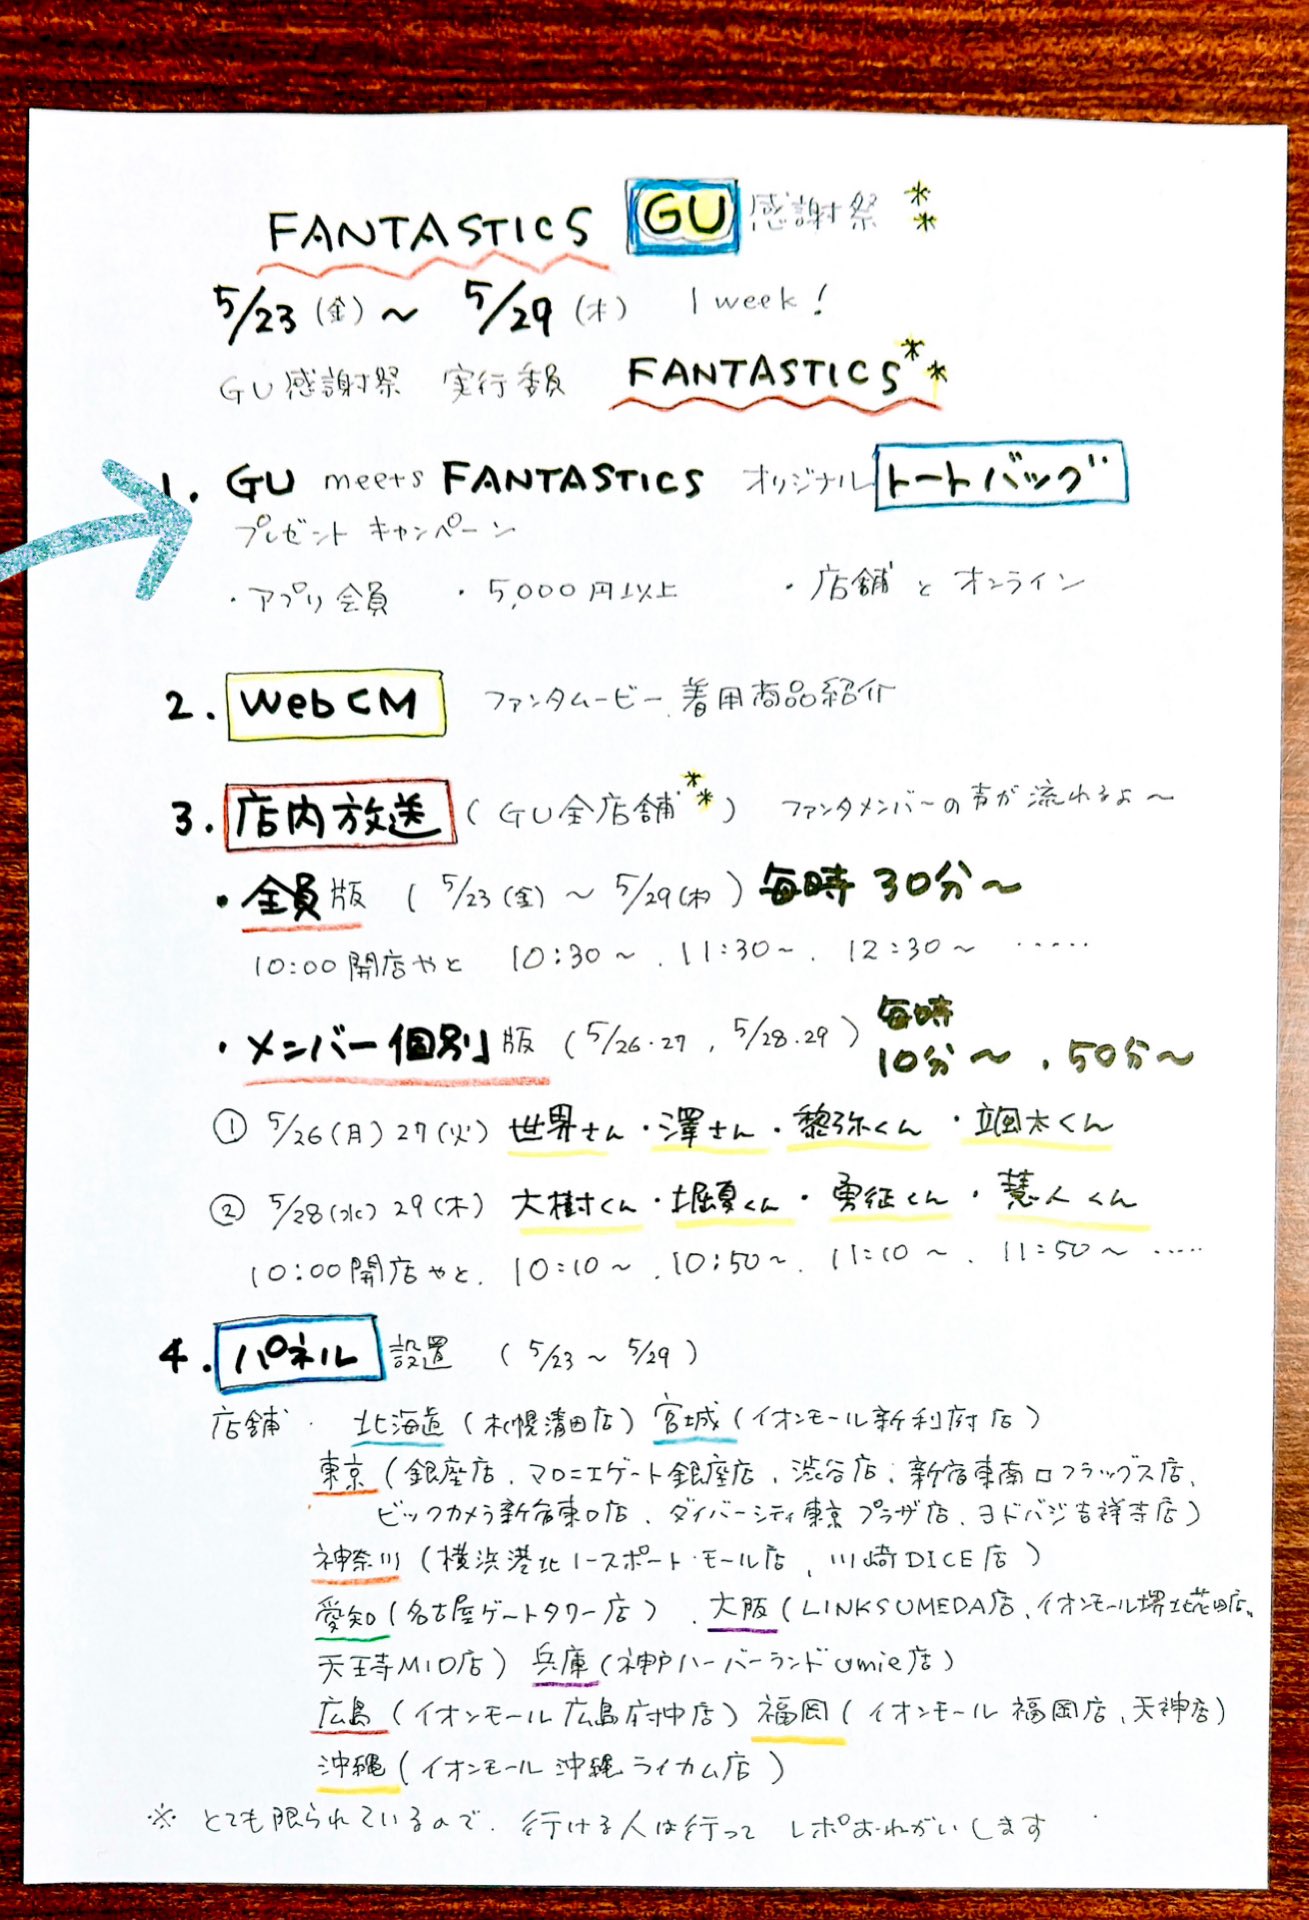 FANTASTICS GU 感謝祭 **
5/23 (金) 〜 5/29 (木) 1 week!
GU感謝祭 実行委員 FANTASTICS **
1. GU meets FANTASTICS オリジナル トートバッグ
プレゼント キャンペーン
・アプリ会員 ・5,000円以上 ・店舗とオンライン
2. Web CM ファンタムービー、着用商品紹介
3. 店内放送 (GU全店舗**) ファンタメンバーの声が流れるよ〜
・全員版 (5/23(金)〜5/29(木)) 毎時 30分〜
10:00開店やと 10:30〜、11:30〜、12:30〜 ……
・メンバー個別版 (5/26・27、5/28・29) 毎時
10分〜、50分〜
① 5/26(月) 27(火) 世界さん・澤さん・黎弥くん・颯太くん
② 5/28(水) 29(木) 大樹くん・堀夏くん・勇征くん・慧人くん
10:00開店やと、10:10〜、10:50〜、11:10〜、11:50〜 ……
4. パネル 設置 (5/23〜5/29)
店舗・ 北海道(札幌清田店) 宮城(イオンモール新利府店)
東京(銀座店、マロニエゲート銀座店、渋谷店、新宿東南口フラッグス店、
ビックカメラ新宿東口店、ダイバーシティ東京プラザ店、ヨドバシ吉祥寺店)
神奈川(横浜港北ノースポート・モール店、川崎DICE店)
愛知(名古屋ゲートタワー店)、大阪(LINKSUMEDA店、イオンモール堺北花田店、
天王寺MIO店) 兵庫(神戸ハーバーランドumie店)
広島(イオンモール広島府中店) 福岡(イオンモール福岡店、天神店)
沖縄(イオンモール沖縄ライカム店)
※ とても限られているので、行ける人は行って レポおねがいします